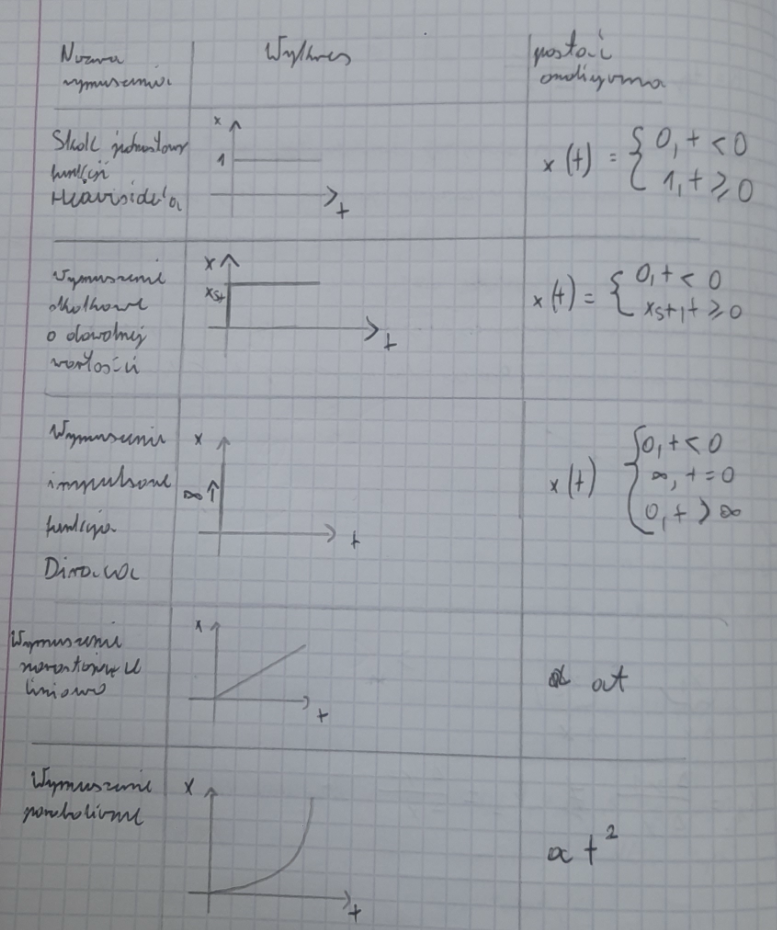 Nazwa
wymuszenia
Wykres
postać
analityczna
Skok jednostkowy
funkcji
Heaviside'a
x
1
t
x(t) = { 0, t < 0
1, t ≥ 0
Wymuszenie
skokowe
o dowolnej
wartości
x
xst
t
x(t) = { 0, t < 0
xst, t ≥ 0
Wymuszenie
impulsowe
funkcja
Diraca
x
∞ ↑
t
x(t) { 0, t < 0
∞, t = 0
0, t > ∞
Wymuszenie
narastające
liniowo
x
t
at
Wymuszenie
paraboliczne
x
t
a t²